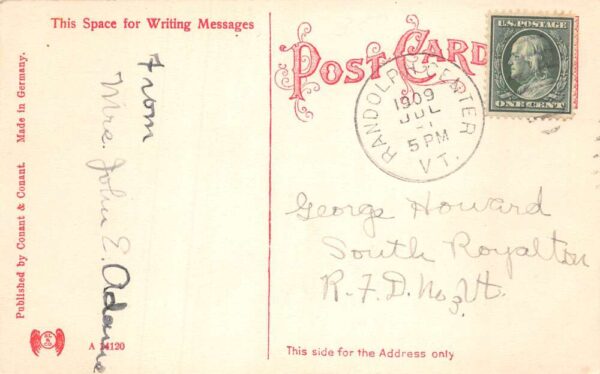 This Space for Writing Messages
POST CARD
U.S. POSTAGE
ONE CENT
RANDOLPH CENTER
1909
JUL
5 PM
VT.
From
Mrs. John E. Adams
George Howard
South Royalton
R.F.D. No 3 Vt.
Published by Conant & Conant. Made in Germany.
A 14120
This side for the Address only